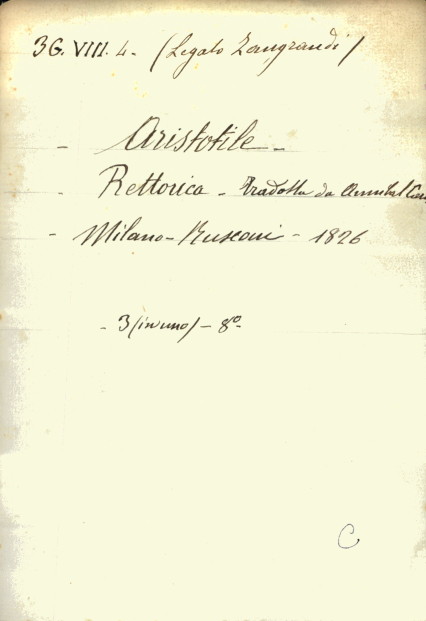 3G. VIII. 4. - (Legato Zangrandi)
- Aristotile -
- Rettorica - tradotta da Annibal Car
- Milano - Rusconi - 1826
- 3 (in uno) - 8º
C